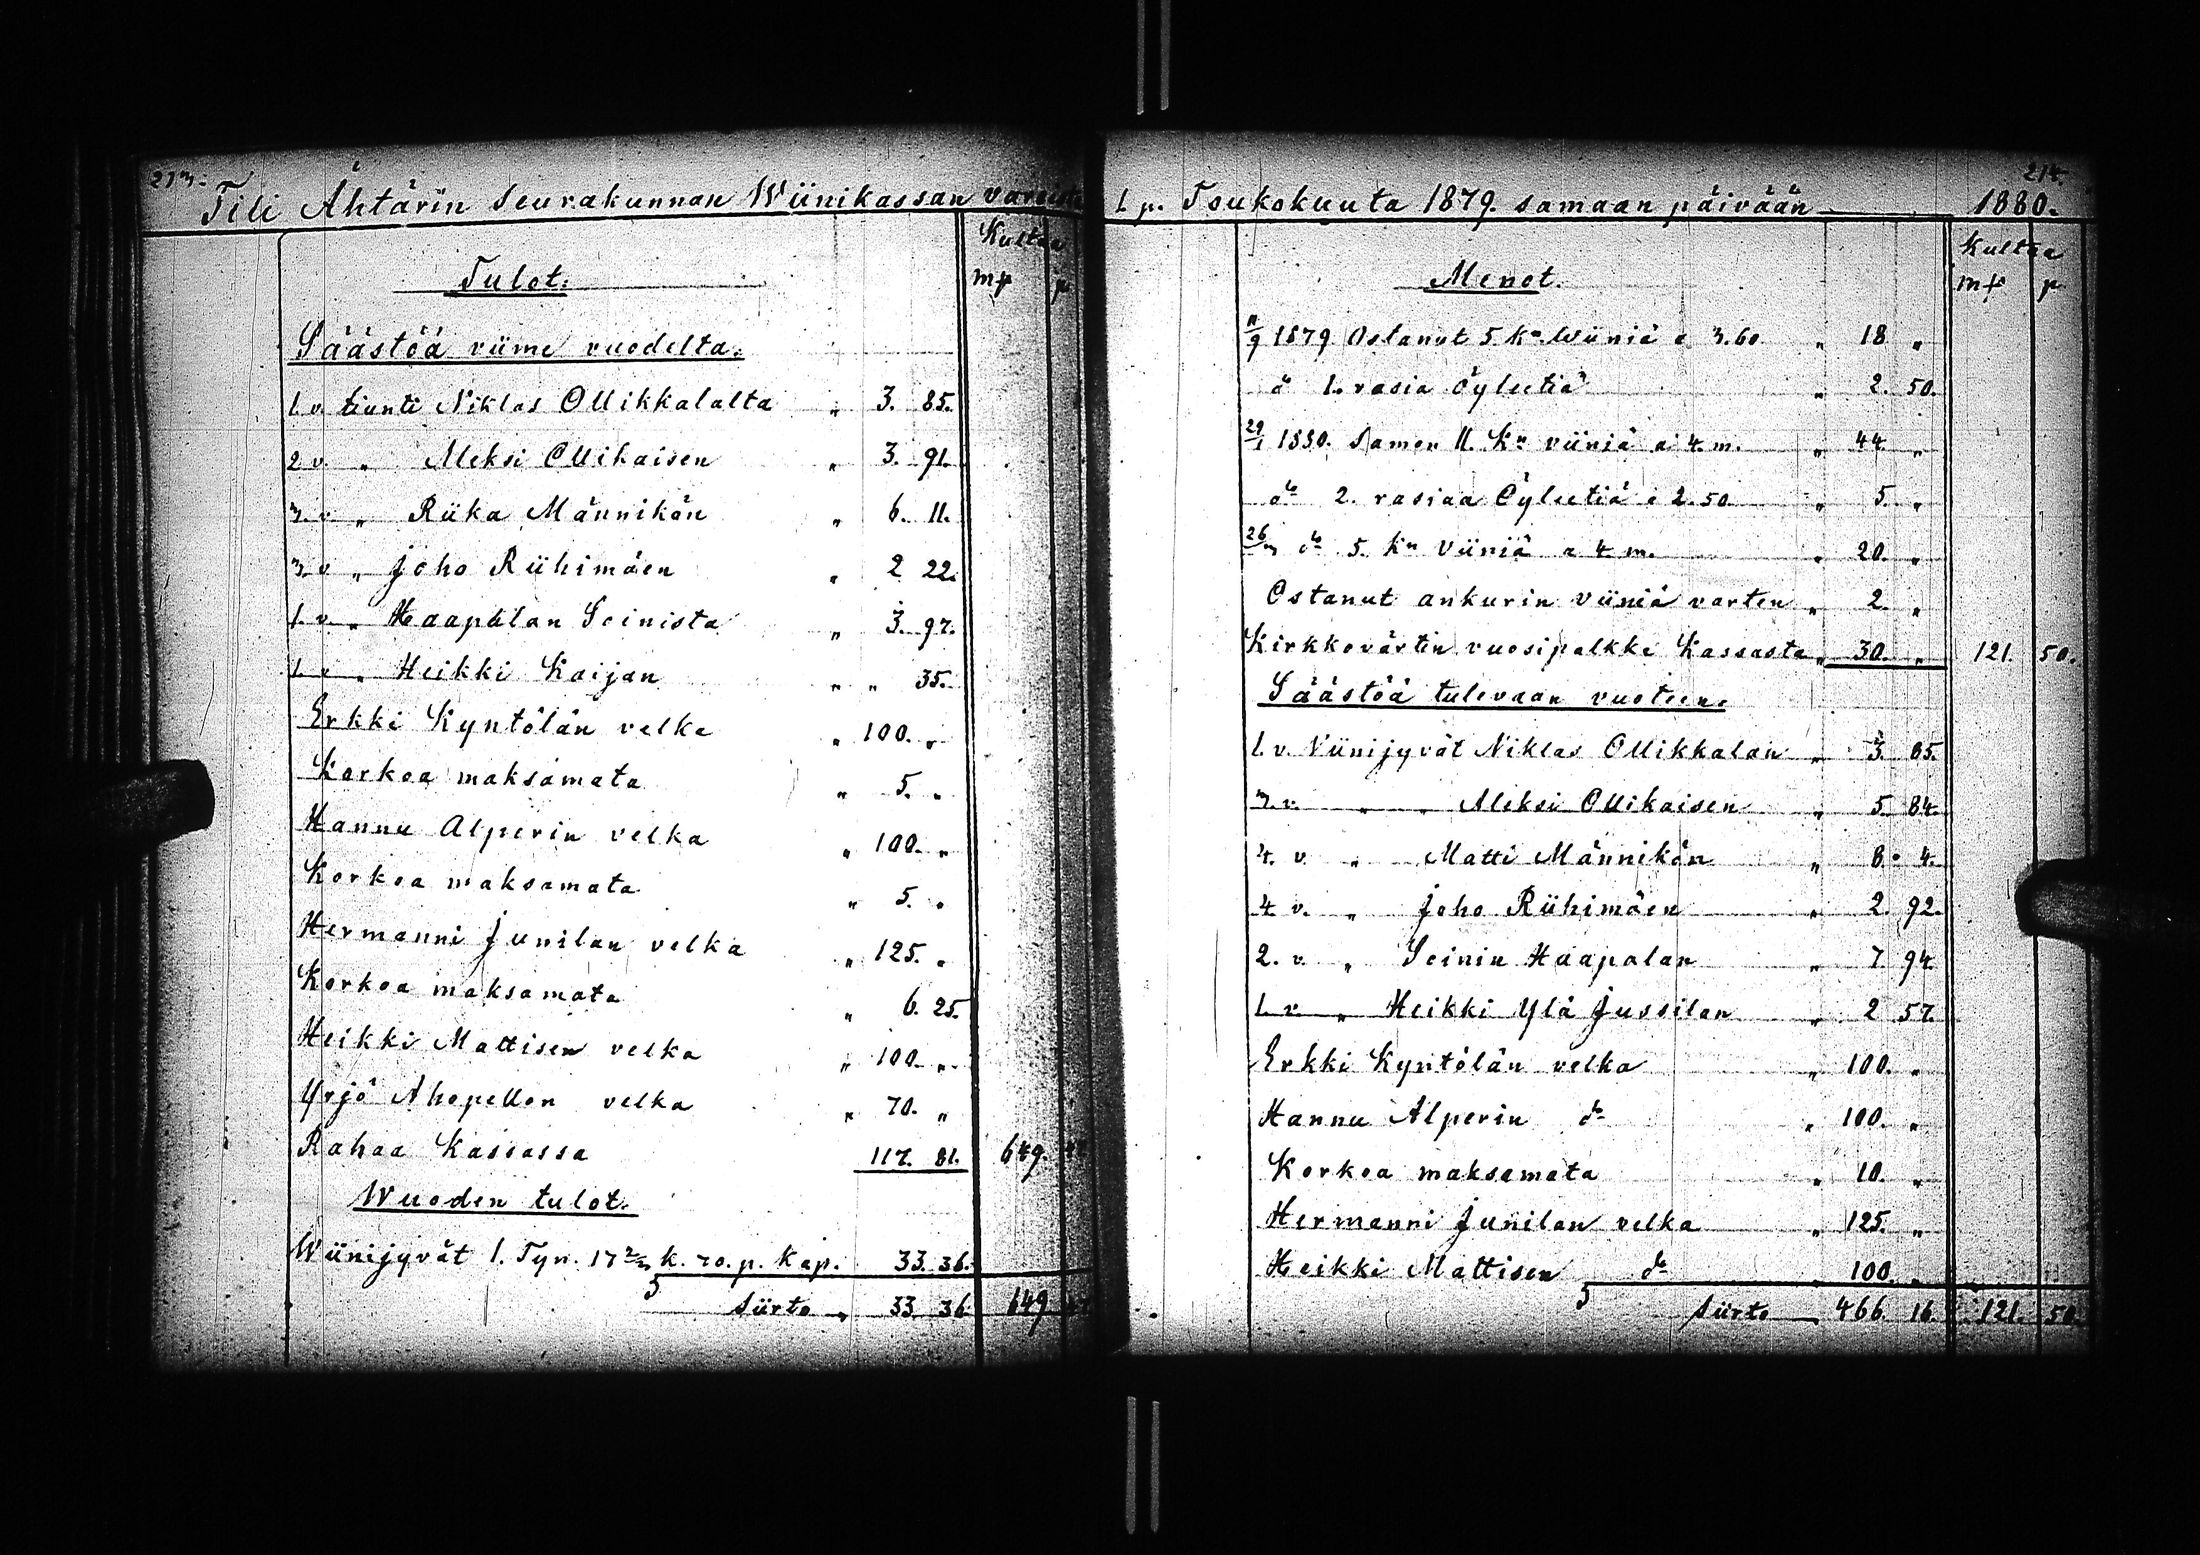 213.
Tili Ähtärin Seurakunnan Wiinikassan varoista
Kultaa
Tulot. mp p
Säästöä viime vuodelta.
1. v. tiunti Niklas Ollikkalalta " 3. 85.
2 v. " Aleksi Ollikaisen " 3. 91.
3. v. " Riika Männikön " 6. 11.
3. v " Joho Riihimäen " 2 22.
1. v. " Haapalan Seinista " 3. 97.
1. v " Heikki Kaijan " " 35.
Erkki Kyntölän velka " 100. "
Korkoa maksamata " 5. "
Hannu Alperin velka " 100. "
Korkoa maksamata " 5. "
Hermanni Junilan velka " 125. "
Korkoa maksamata " 6. 25.
Heikki Mattisen velka " 100. "
Yrjö Ahopellon velka " 70. "
Rahaa Kassassa 117. 81. 649. 47
Wuoden tulot.
Wiinijyvät 1. Tyn. 17 2/3 k. 70. p. Kap. 33. 36.
Siirto " 33. 36. 649 47
214.
1 p. Toukokuuta 1879. samaan päivään 1880.
Kultaa
Menot. mp p
11/9 1879 Ostanut 5 Kn Wiiniä a 3.60 " 18 "
do 1. rasia Öyleetiä " 2. 50.
29/1 1880. Samon 11. Kn viiniä a 4. m. " 44. "
do 2. rasiaa Öyleetiä a 2.50 " 5. "
26/3 do 5. Kn Viiniä a 4 m. " 20. "
Ostanut ankurin viiniä varten " 2. "
Kirkkovärtin vuosipalkka Kassasta " 30. " 121. 50.
Säästöä tulevaan vuoteen.
1. v. Viinijyvät Niklas Ollikkalan " 3. 85.
3. v. " " Aleksi Ollikaisen " 5. 84.
4. v. " Matti Männikön " 8. 4.
4 v. " Joho Riihimäen " 2. 92.
2. v. " Seinin Haapalan " 7 94
1. v. " Heikki Ylä Jussilan " 2 57.
Erkki Kyntölän velka " 100. "
Hannu Alperin do " 100. "
Korkoa maksamata " 10. "
Hermanni Junilan velka " 125. "
Heikki Mattisen do 100. "
Siirto 466. 16. 121. 50.